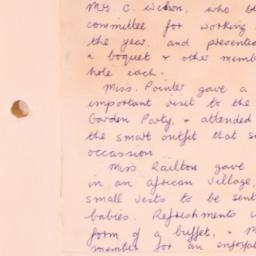 Mrs C. Weston, who
committee for working
the year, and presente
a boquet & other mem
hole each.
Miss. Pointer gave a
important visit to the
Garden Party, & attended
the smart outfit that s
occassion
Mrs Railton gave
in an african village,
small vests to be sent
babies. Refreshments
form of a buffet, &
member for an enjoyab